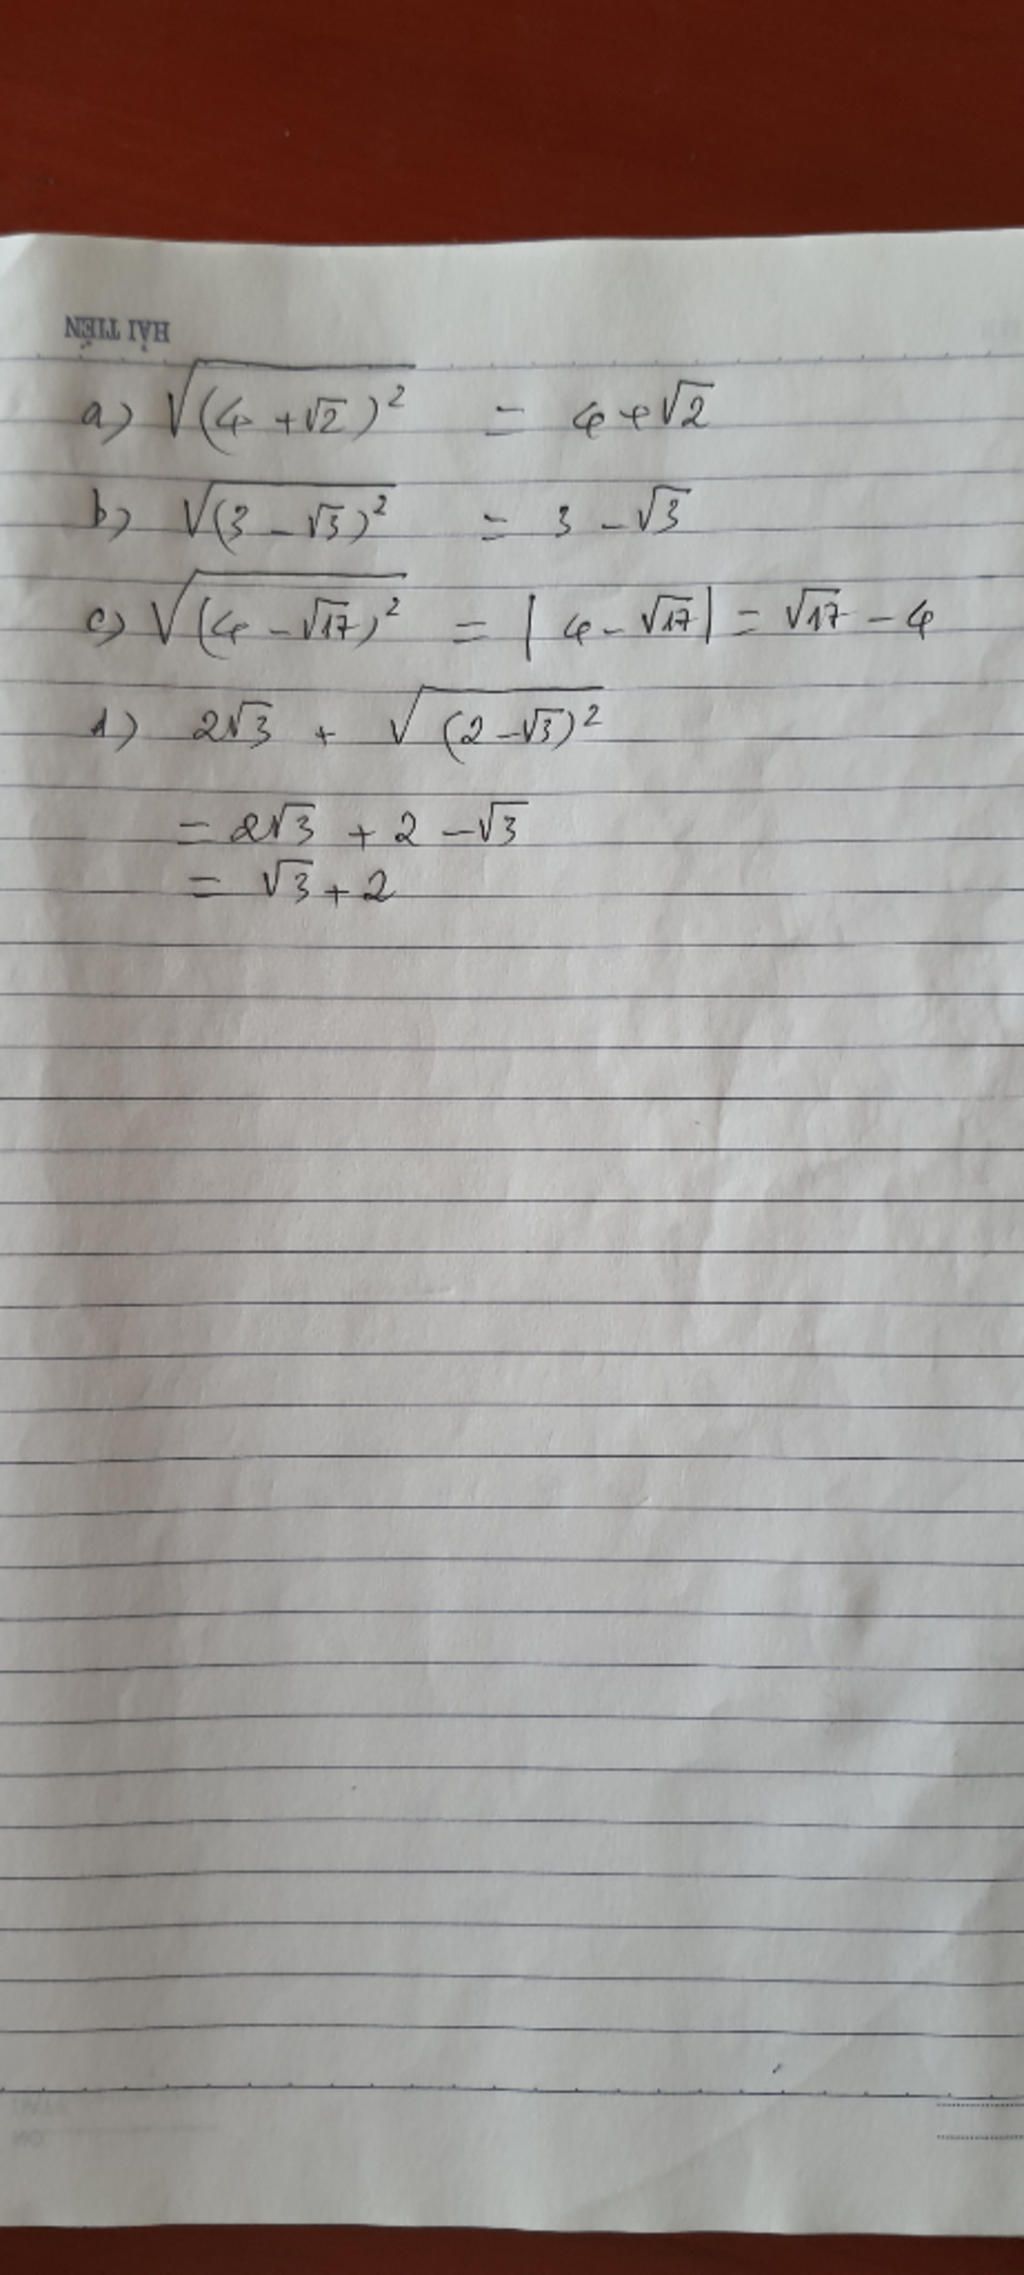 HẢI TIẾN
a) √(4+√2)² = 4+√2
b) √(3-√3)² = 3-√3
c) √(4-√17)² = |4-√17| = √17-4
d) 2√3 + √(2-√3)²
= 2√3 + 2 -√3
= √3+2